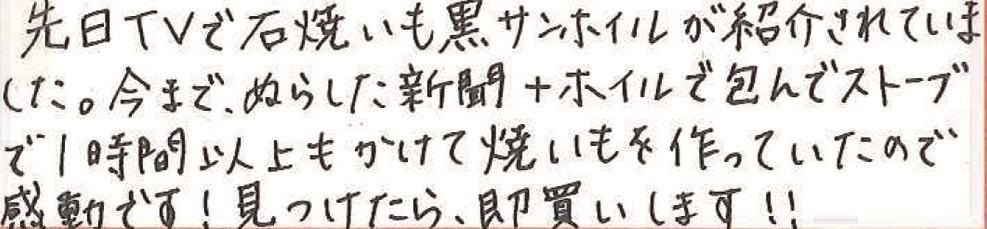 先日TVで石焼いも黒サンホイルが紹介されていま
した。今まで、ぬらした新聞+ホイルで包んでストーブ
で1時間以上もかけて焼いもを作っていたので
感動です!見つけたら、即買いします!!